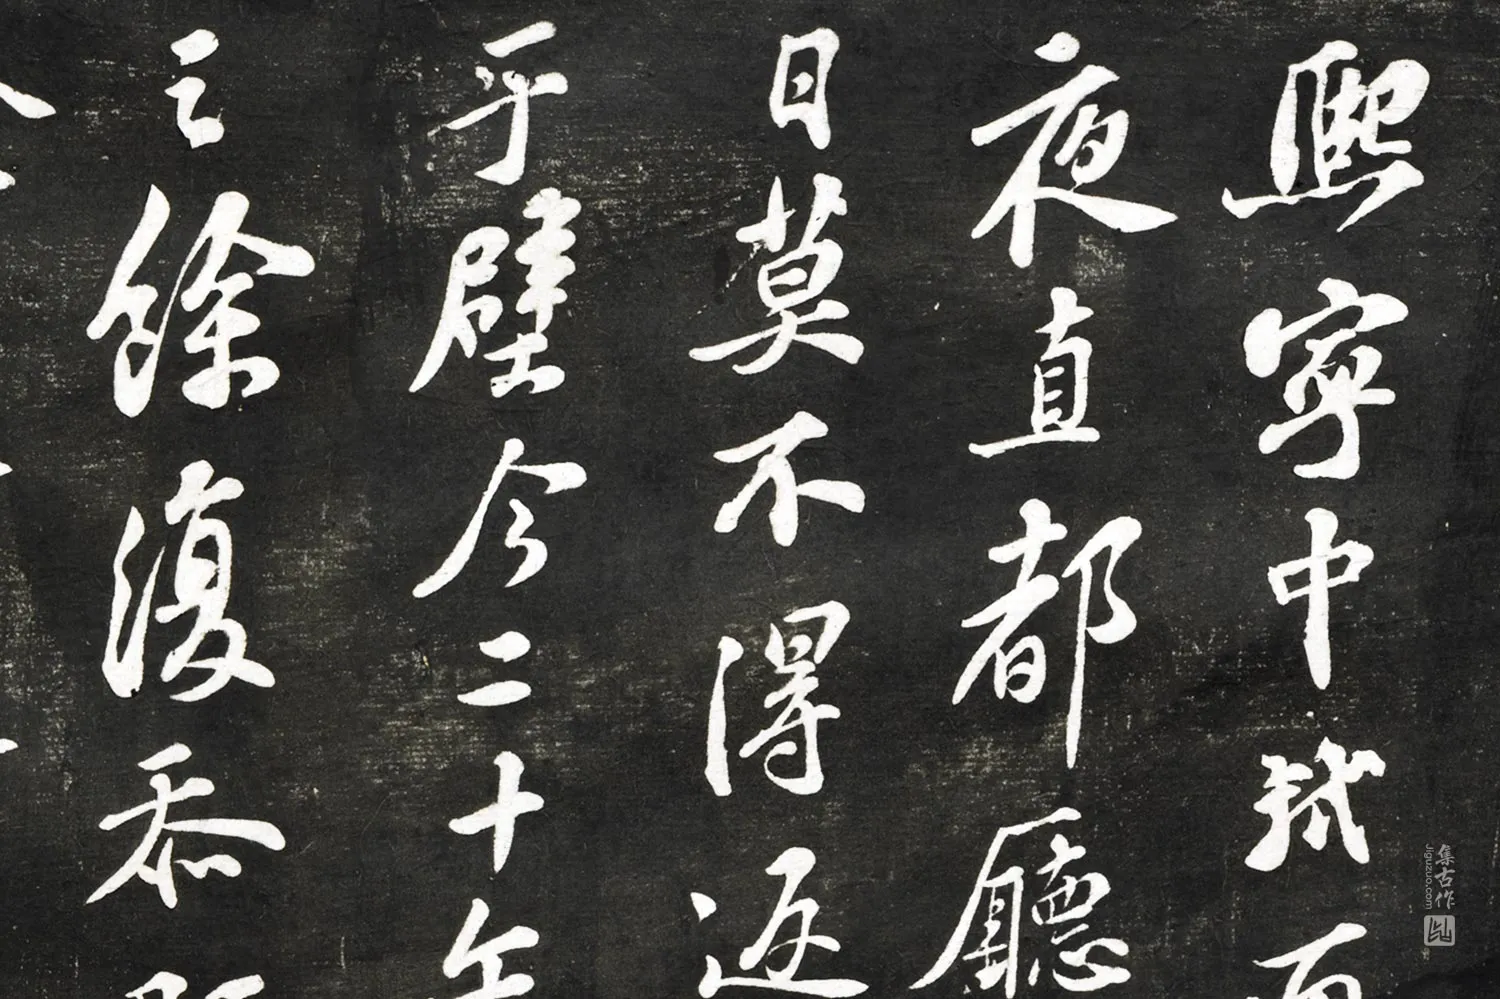 熙寧中軾
夜直都廳
日莫不得返
平壁今二十年
之餘復忝
集古作
jiguzuo.com